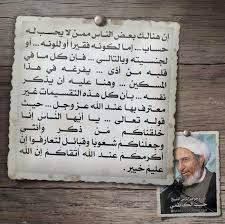 ان هنالك بعض الناس ممن لا يحسب له
حساب ... إما لكونه فقيرا أو للونه ... أو
لجنسيته وبالتالي ... فإن كل ما في
قلبه من أذى ... يفرغه في هذا
المسكين ... وهنا عليه ان يذكر
نفسه .. بأن كل هذه التقسيمات غير
معترف بها عند الله عز وجل ... حيث
قوله تعالى .. يا أيها الناس إنا
خلقناكم من ذكر وأنثى
وجعلناكم شعوبا وقبائل لتعارفوا إن
أكرمكم عند الله أتقاكم إن الله
عليم خبير .